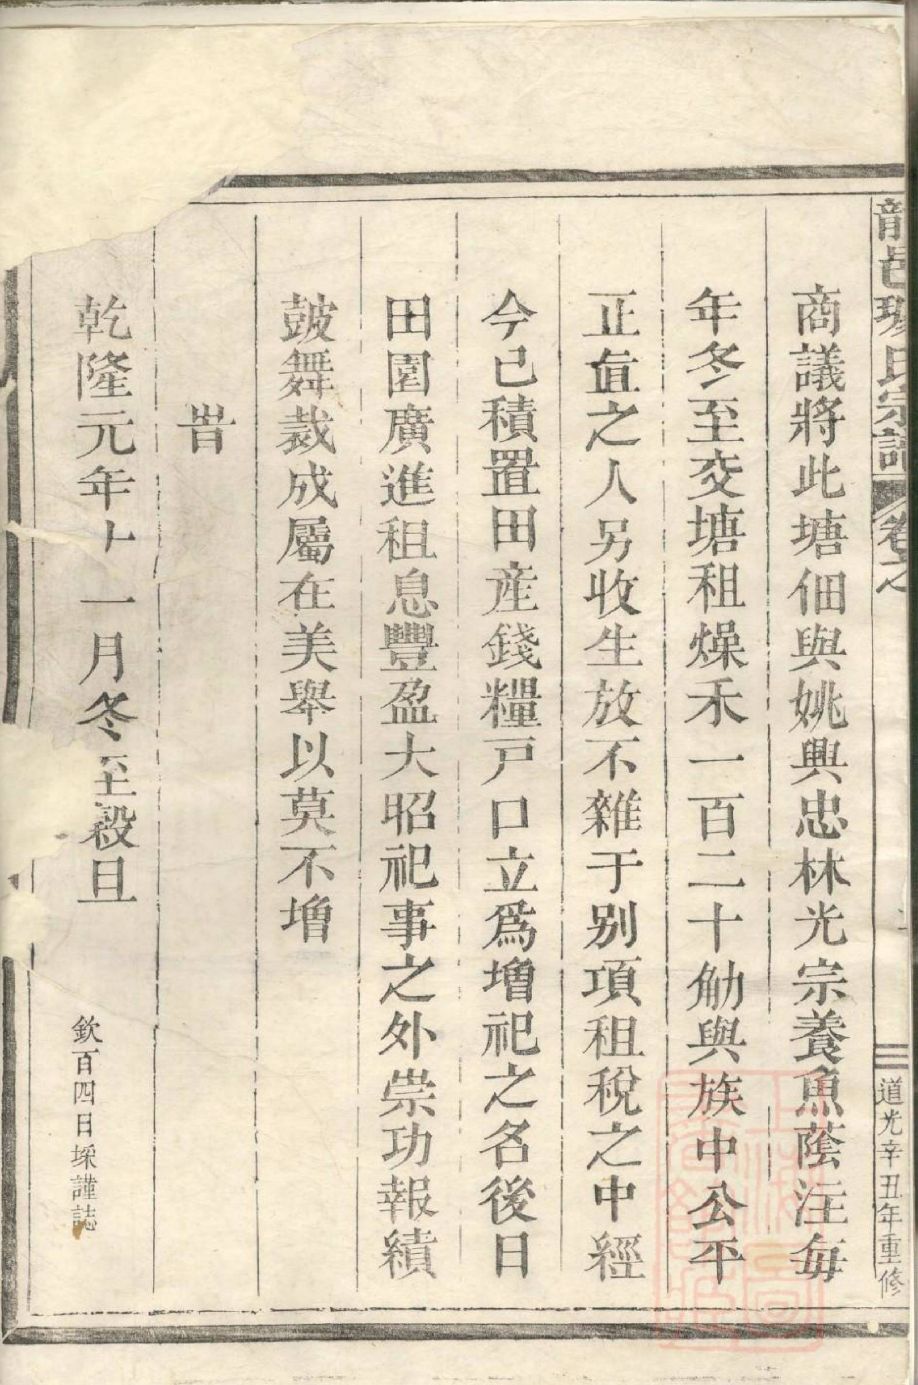 商議將此塘佃與姚興忠林光宗養魚蔭注每
年冬至交塘租燥禾一百二十觔與族中公平
正直之人另收生放不雜于別項租稅之中經
今已積置田産錢糧戸口立爲增祀之名後日
田園廣進租息豐盈大昭祀事之外崇功報績
鼓舞裁成屬在美舉以莫不增
旹
乾隆元年十一月冬至穀旦
欽百四日堔謹誌
道光辛丑年重修